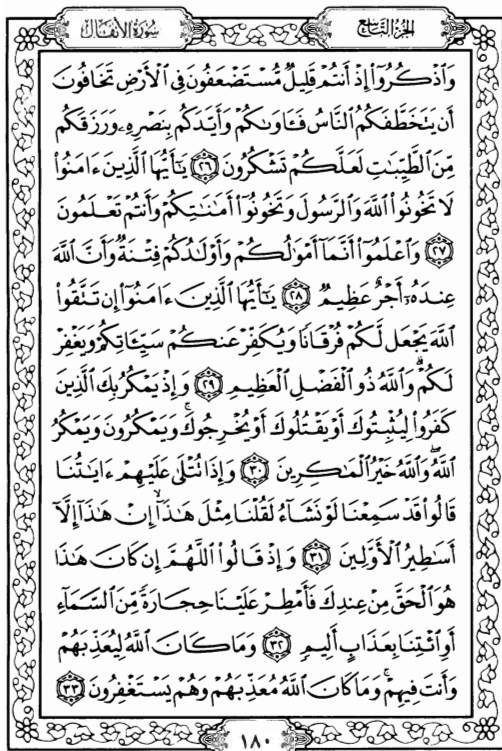 الجزء التاسع
سورة الأنفال
وَٱذۡكُرُوٓاْ إِذۡ أَنتُمۡ قَلِيلٞ مُّسۡتَضۡعَفُونَ فِي ٱلۡأَرۡضِ تَخَافُونَ
أَن يَتَخَطَّفَكُمُ ٱلنَّاسُ فَـَٔاوَىٰكُمۡ وَأَيَّدَكُم بِنَصۡرِهِۦ وَرَزَقَكُم
مِّنَ ٱلطَّيِّبَٰتِ لَعَلَّكُمۡ تَشۡكُرُونَ ٢٦ يَٰٓأَيُّهَا ٱلَّذِينَ ءَامَنُواْ
لَا تَخُونُواْ ٱللَّهَ وَٱلرَّسُولَ وَتَخُونُوٓاْ أَمَٰنَٰتِكُمۡ وَأَنتُمۡ تَعۡلَمُونَ
٢٧ وَٱعۡلَمُوٓاْ أَنَّمَآ أَمۡوَٰلُكُمۡ وَأَوۡلَٰدُكُمۡ فِتۡنَةٞ وَأَنَّ ٱللَّهَ
عِندَهُۥٓ أَجۡرٌ عَظِيمٞ ٢٨ يَٰٓأَيُّهَا ٱلَّذِينَ ءَامَنُوٓاْ إِن تَتَّقُواْ
ٱللَّهَ يَجۡعَل لَّكُمۡ فُرۡقَانٗا وَيُكَفِّرۡ عَنكُمۡ سَيِّـَٔاتِكُمۡ وَيَغۡفِرۡ
لَكُمۡۗ وَٱللَّهُ ذُو ٱلۡفَضۡلِ ٱلۡعَظِيمِ ٢٩ وَإِذۡ يَمۡكُرُ بِكَ ٱلَّذِينَ
كَفَرُواْ لِيُثۡبِتُوكَ أَوۡ يَقۡتُلُوكَ أَوۡ يُخۡرِجُوكَۚ وَيَمۡكُرُونَ وَيَمۡكُرُ
ٱللَّهُۖ وَٱللَّهُ خَيۡرُ ٱلۡمَٰكِرِينَ ٣٠ وَإِذَا تُتۡلَىٰ عَلَيۡهِمۡ ءَايَٰتُنَا
قَالُواْ قَدۡ سَمِعۡنَا لَوۡ نَشَآءُ لَقُلۡنَا مِثۡلَ هَٰذَآ إِنۡ هَٰذَآ إِلَّآ
أَسَٰطِيرُ ٱلۡأَوَّلِينَ ٣١ وَإِذۡ قَالُواْ ٱللَّهُمَّ إِن كَانَ هَٰذَا
هُوَ ٱلۡحَقَّ مِنۡ عِندِكَ فَأَمۡطِرۡ عَلَيۡنَا حِجَارَةٗ مِّنَ ٱلسَّمَآءِ
أَوِ ٱئۡتِنَا بِعَذَابٍ أَلِيمٖ ٣٢ وَمَا كَانَ ٱللَّهُ لِيُعَذِّبَهُمۡ
وَأَنتَ فِيهِمۡۚ وَمَا كَانَ ٱللَّهُ مُعَذِّبَهُمۡ وَهُمۡ يَسۡتَغۡفِرُونَ ٣٣
١٨٠